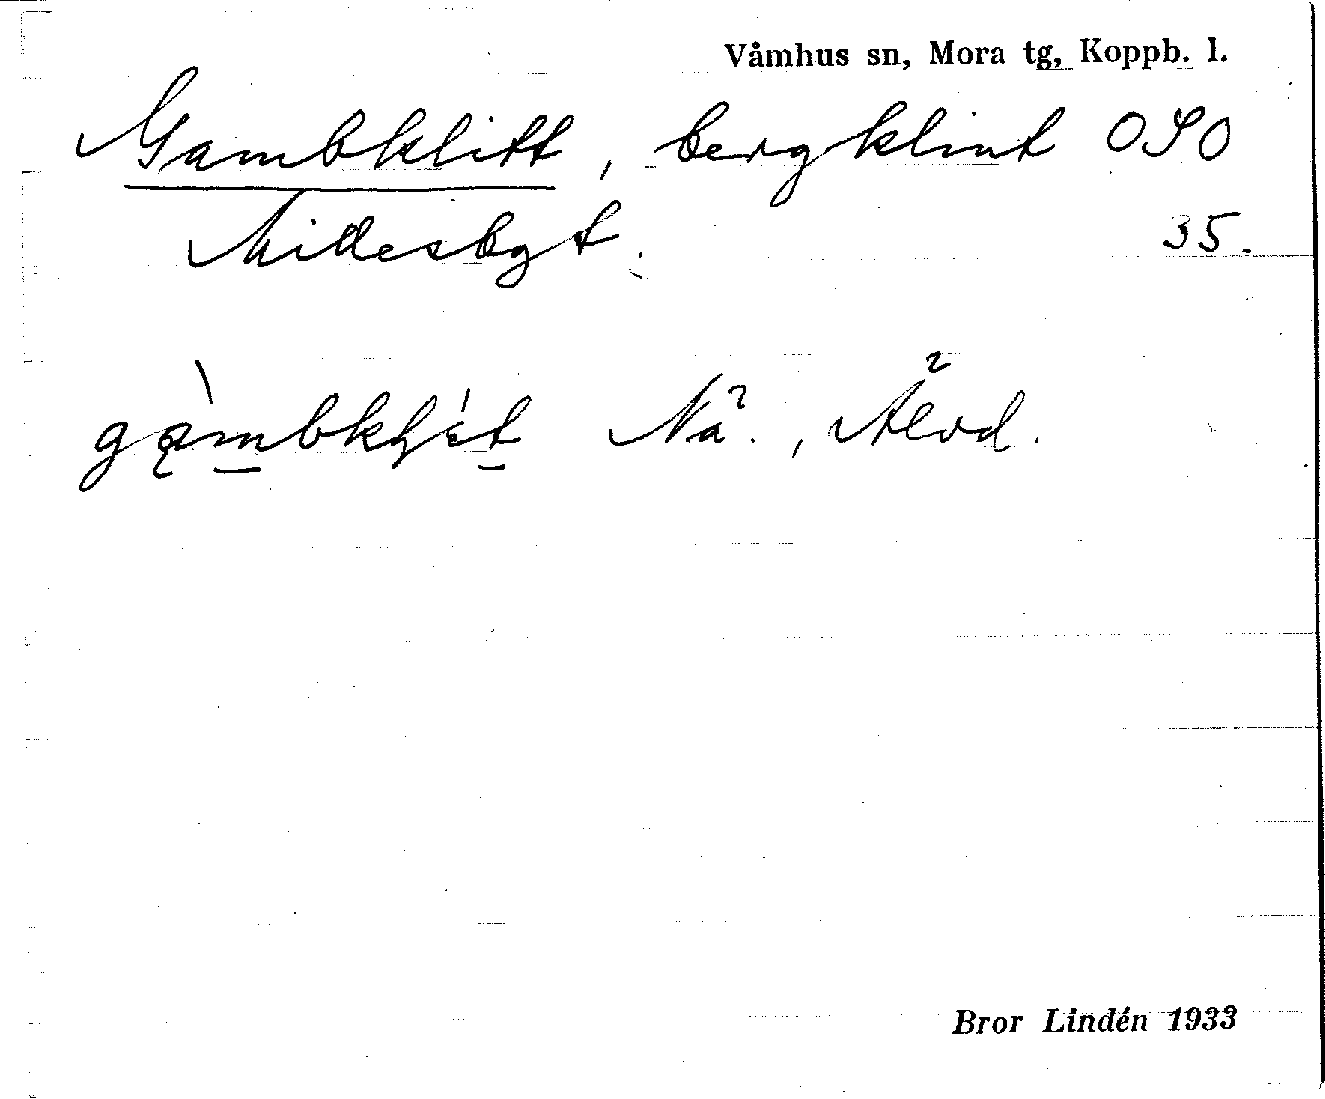 Våmhus sn, Mora tg, Koppb. l.
Gambklitt, bergklint OSO
Millesbgt. 35.
Nä., Älvd.
Bror Lindén 1933